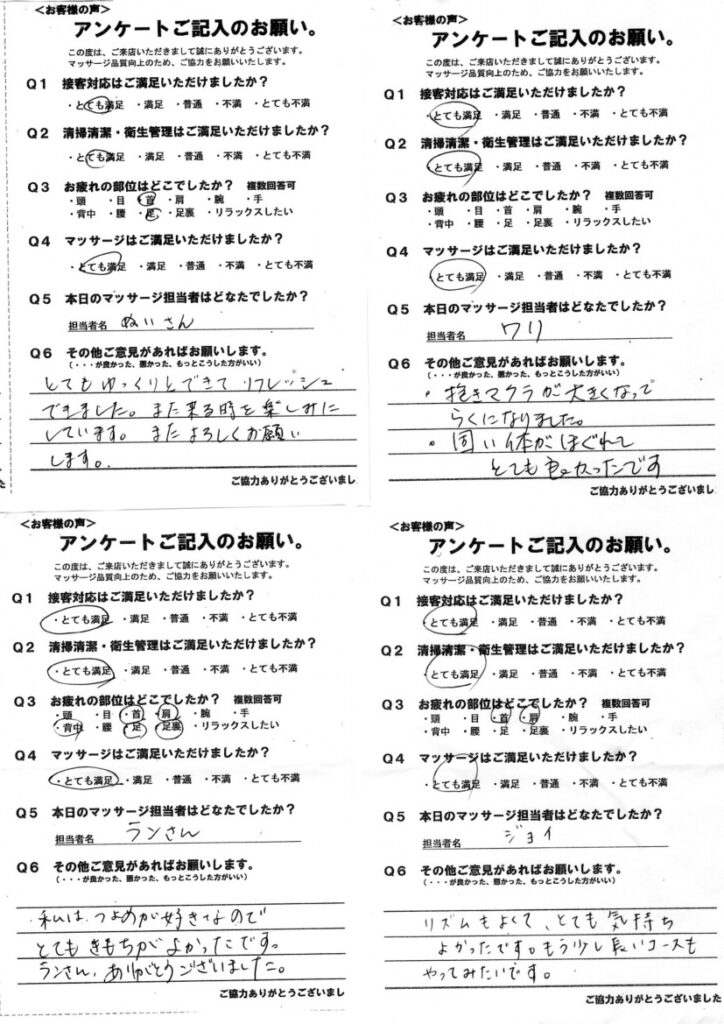 <お客様の声>
アンケートご記入のお願い。
この度は、ご来店いただきまして誠にありがとうございます。
マッサージ品質向上のため、ご協力をお願いいたします。
Q1 接客対応はご満足いただけましたか？
・とても満足 ・満足 ・普通 ・不満 ・とても不満
Q2 清掃清潔・衛生管理はご満足いただけましたか？
・とても満足 ・満足 ・普通 ・不満 ・とても不満
Q3 お疲れの部位はどこでしたか？ 複数回答可
・頭 ・目 ・首 ・肩 ・腕 ・手
・背中 ・腰 ・足 ・足裏 ・リラックスしたい
Q4 マッサージはご満足いただけましたか？
・とても満足 ・満足 ・普通 ・不満 ・とても不満
Q5 本日のマッサージ担当者はどなたでしたか？
担当者名 ぬいさん
Q6 その他ご意見があればお願いします。
(・・・が良かった、悪かった、もっとこうした方がいい)
とてもゆっくりとできて リフレッシュ
できました。また来る時を楽しみに
しています。またよろしくお願い
します。
ご協力ありがとうございまし
<お客様の声>
アンケートご記入のお願い。
この度は、ご来店いただきまして誠にありがとうございます。
マッサージ品質向上のため、ご協力をお願いいたします。
Q1 接客対応はご満足いただけましたか？
・とても満足 ・満足 ・普通 ・不満 ・とても不満
Q2 清掃清潔・衛生管理はご満足いただけましたか？
・とても満足 ・満足 ・普通 ・不満 ・とても不満
Q3 お疲れの部位はどこでしたか？ 複数回答可
・頭 ・目 ・首 ・肩 ・腕 ・手
・背中 ・腰 ・足 ・足裏 ・リラックスしたい
Q4 マッサージはご満足いただけましたか？
・とても満足 ・満足 ・普通 ・不満 ・とても不満
Q5 本日のマッサージ担当者はどなたでしたか？
担当者名 ワリ
Q6 その他ご意見があればお願いします。
(・・・が良かった、悪かった、もっとこうした方がいい)
・抱きマクラが大きくなって
らくになりました。
・固い体がほぐれて
とても良かったです
ご協力ありがとうございまし
<お客様の声>
アンケートご記入のお願い。
この度は、ご来店いただきまして誠にありがとうございます。
マッサージ品質向上のため、ご協力をお願いいたします。
Q1 接客対応はご満足いただけましたか？
・とても満足 ・満足 ・普通 ・不満 ・とても不満
Q2 清掃清潔・衛生管理はご満足いただけましたか？
・とても満足 ・満足 ・普通 ・不満 ・とても不満
Q3 お疲れの部位はどこでしたか？ 複数回答可
・頭 ・目 ・首 ・肩 ・腕 ・手
・背中 ・腰 ・足 ・足裏 ・リラックスしたい
Q4 マッサージはご満足いただけましたか？
・とても満足 ・満足 ・普通 ・不満 ・とても不満
Q5 本日のマッサージ担当者はどなたでしたか？
担当者名 ランさん
Q6 その他ご意見があればお願いします。
(・・・が良かった、悪かった、もっとこうした方がいい)
私は、つよめが好きなので
とてもきもちがよかったです。
ランさん、ありがとうございました。
ご協力ありがとうございまし
<お客様の声>
アンケートご記入のお願い。
この度は、ご来店いただきまして誠にありがとうございます。
マッサージ品質向上のため、ご協力をお願いいたします。
Q1 接客対応はご満足いただけましたか？
・とても満足 ・満足 ・普通 ・不満 ・とても不満
Q2 清掃清潔・衛生管理はご満足いただけましたか？
・とても満足 ・満足 ・普通 ・不満 ・とても不満
Q3 お疲れの部位はどこでしたか？ 複数回答可
・頭 ・目 ・首 ・肩 ・腕 ・手
・背中 ・腰 ・足 ・足裏 ・リラックスしたい
Q4 マッサージはご満足いただけましたか？
・とても満足 ・満足 ・普通 ・不満 ・とても不満
Q5 本日のマッサージ担当者はどなたでしたか？
担当者名 ジョイ
Q6 その他ご意見があればお願いします。
(・・・が良かった、悪かった、もっとこうした方がいい)
リズムもよくて、とても気持ち
よかったです。もう少し長いコースも
やってみたいです。
ご協力ありがとうございました